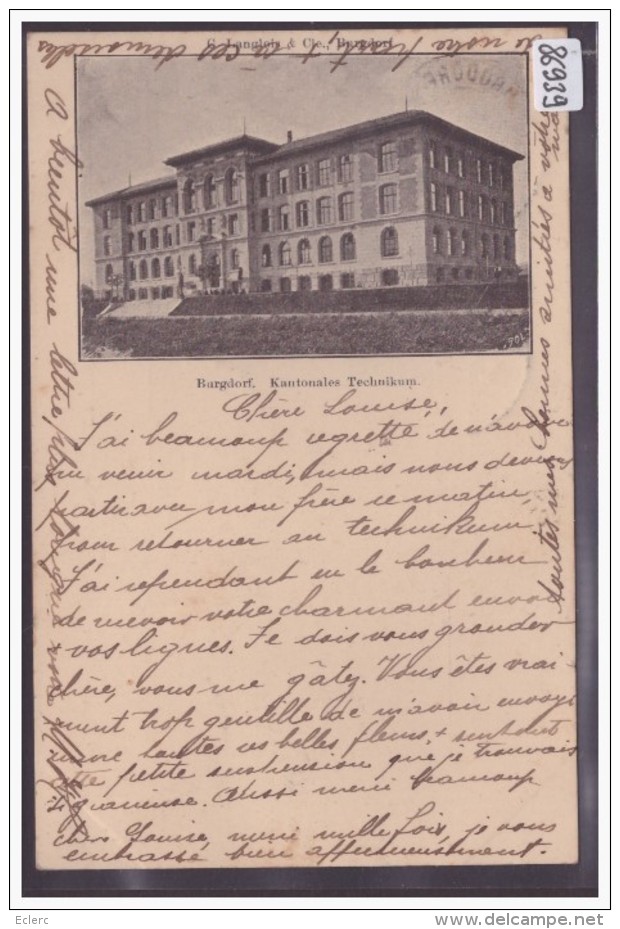 de votre
C. Langlois & Cie., Burgdorf
86939
Burgdorf. Kantonales Technikum.
Chère Louise,
J'ai beaucoup regretté de n'avoir
pu venir mardi, mais nous devions
partir avec mon frère ce matin,
pour retourner au technikum
J'ai cependant eu le bonheur
de recevoir votre charmant envoi
+ vos lignes. Je dois vous gronder
chère, vous me gâtez. Vous êtes vrai-
ment trop gentille de m'avoir envoyé
encore toutes ces belles fleurs, + surtout
cette petite suspension que je trouvais
si gracieuse. Aussi merci beaucoup
chère Louise, merci mille fois, je vous
embrasse bien affectueusement.
A bientôt une lettre plus longue
toutes mes bonnes amitiés à votre
Eclerc
www.delcampe.net